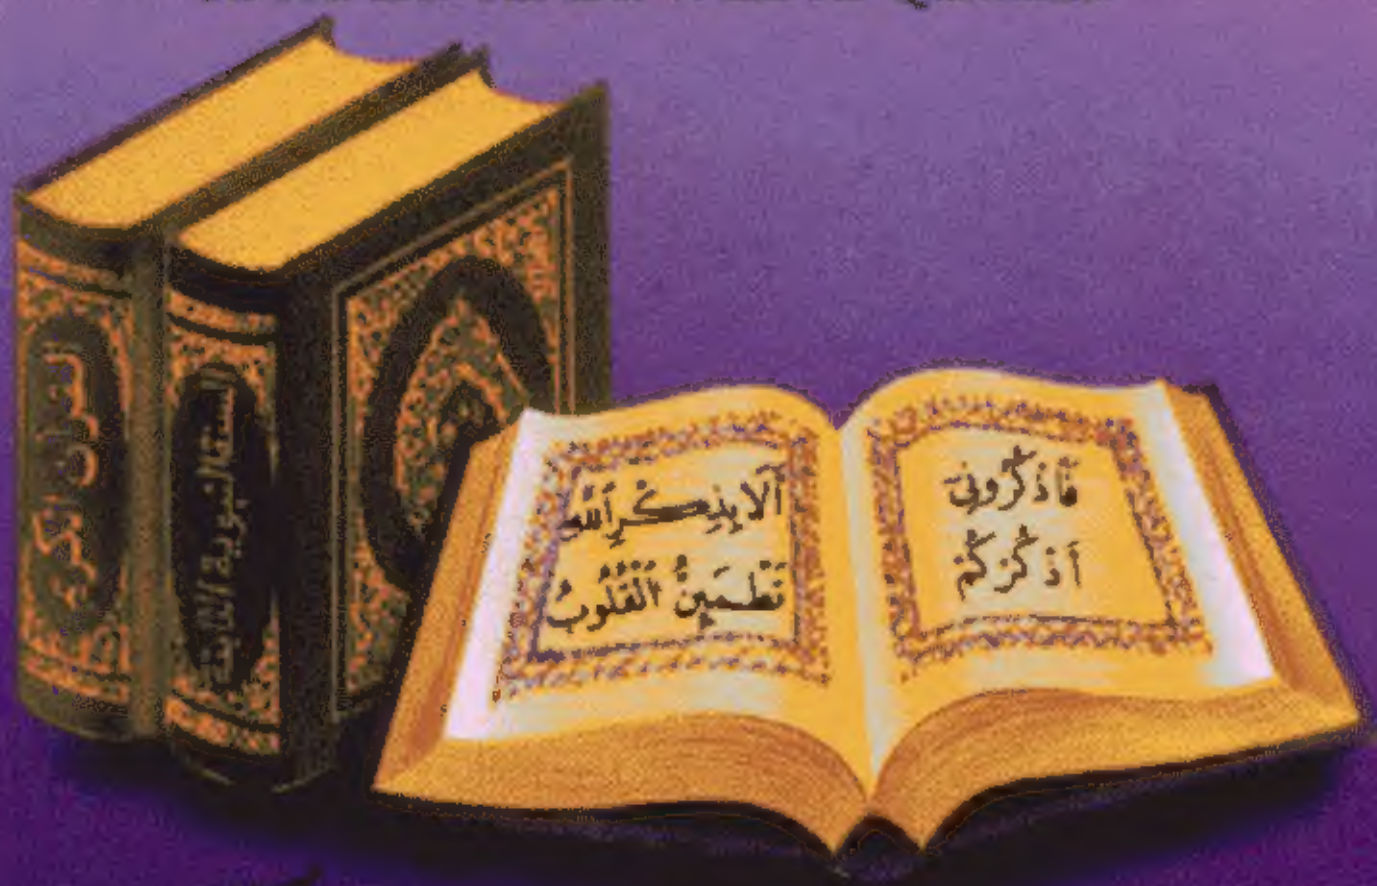 القرآن الكريم
السنة النبوية
فَاذْكُرُونِي
أَذْكُرْكُمْ
أَلَا بِذِكْرِ اللَّهِ
تَطْمَئِنُّ الْقُلُوبُ